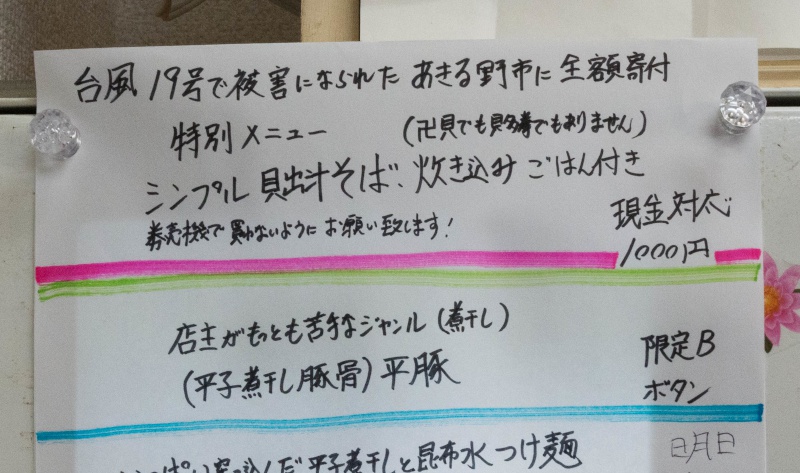 台風19号で被害になられたあきる野市に全額寄付
特別メニュー (卍貝でも貝多券でもありません)
シンプル貝出汁そば、炊き込みごはん付き
現金対応
券売機で買わないようにお願い致します!
1000円
店主がもっとも苦手なジャンル(煮干し)
(平子煮干し豚骨)平豚
限定B
ボタン
平子煮干しと昆布水つけ麺
日月日